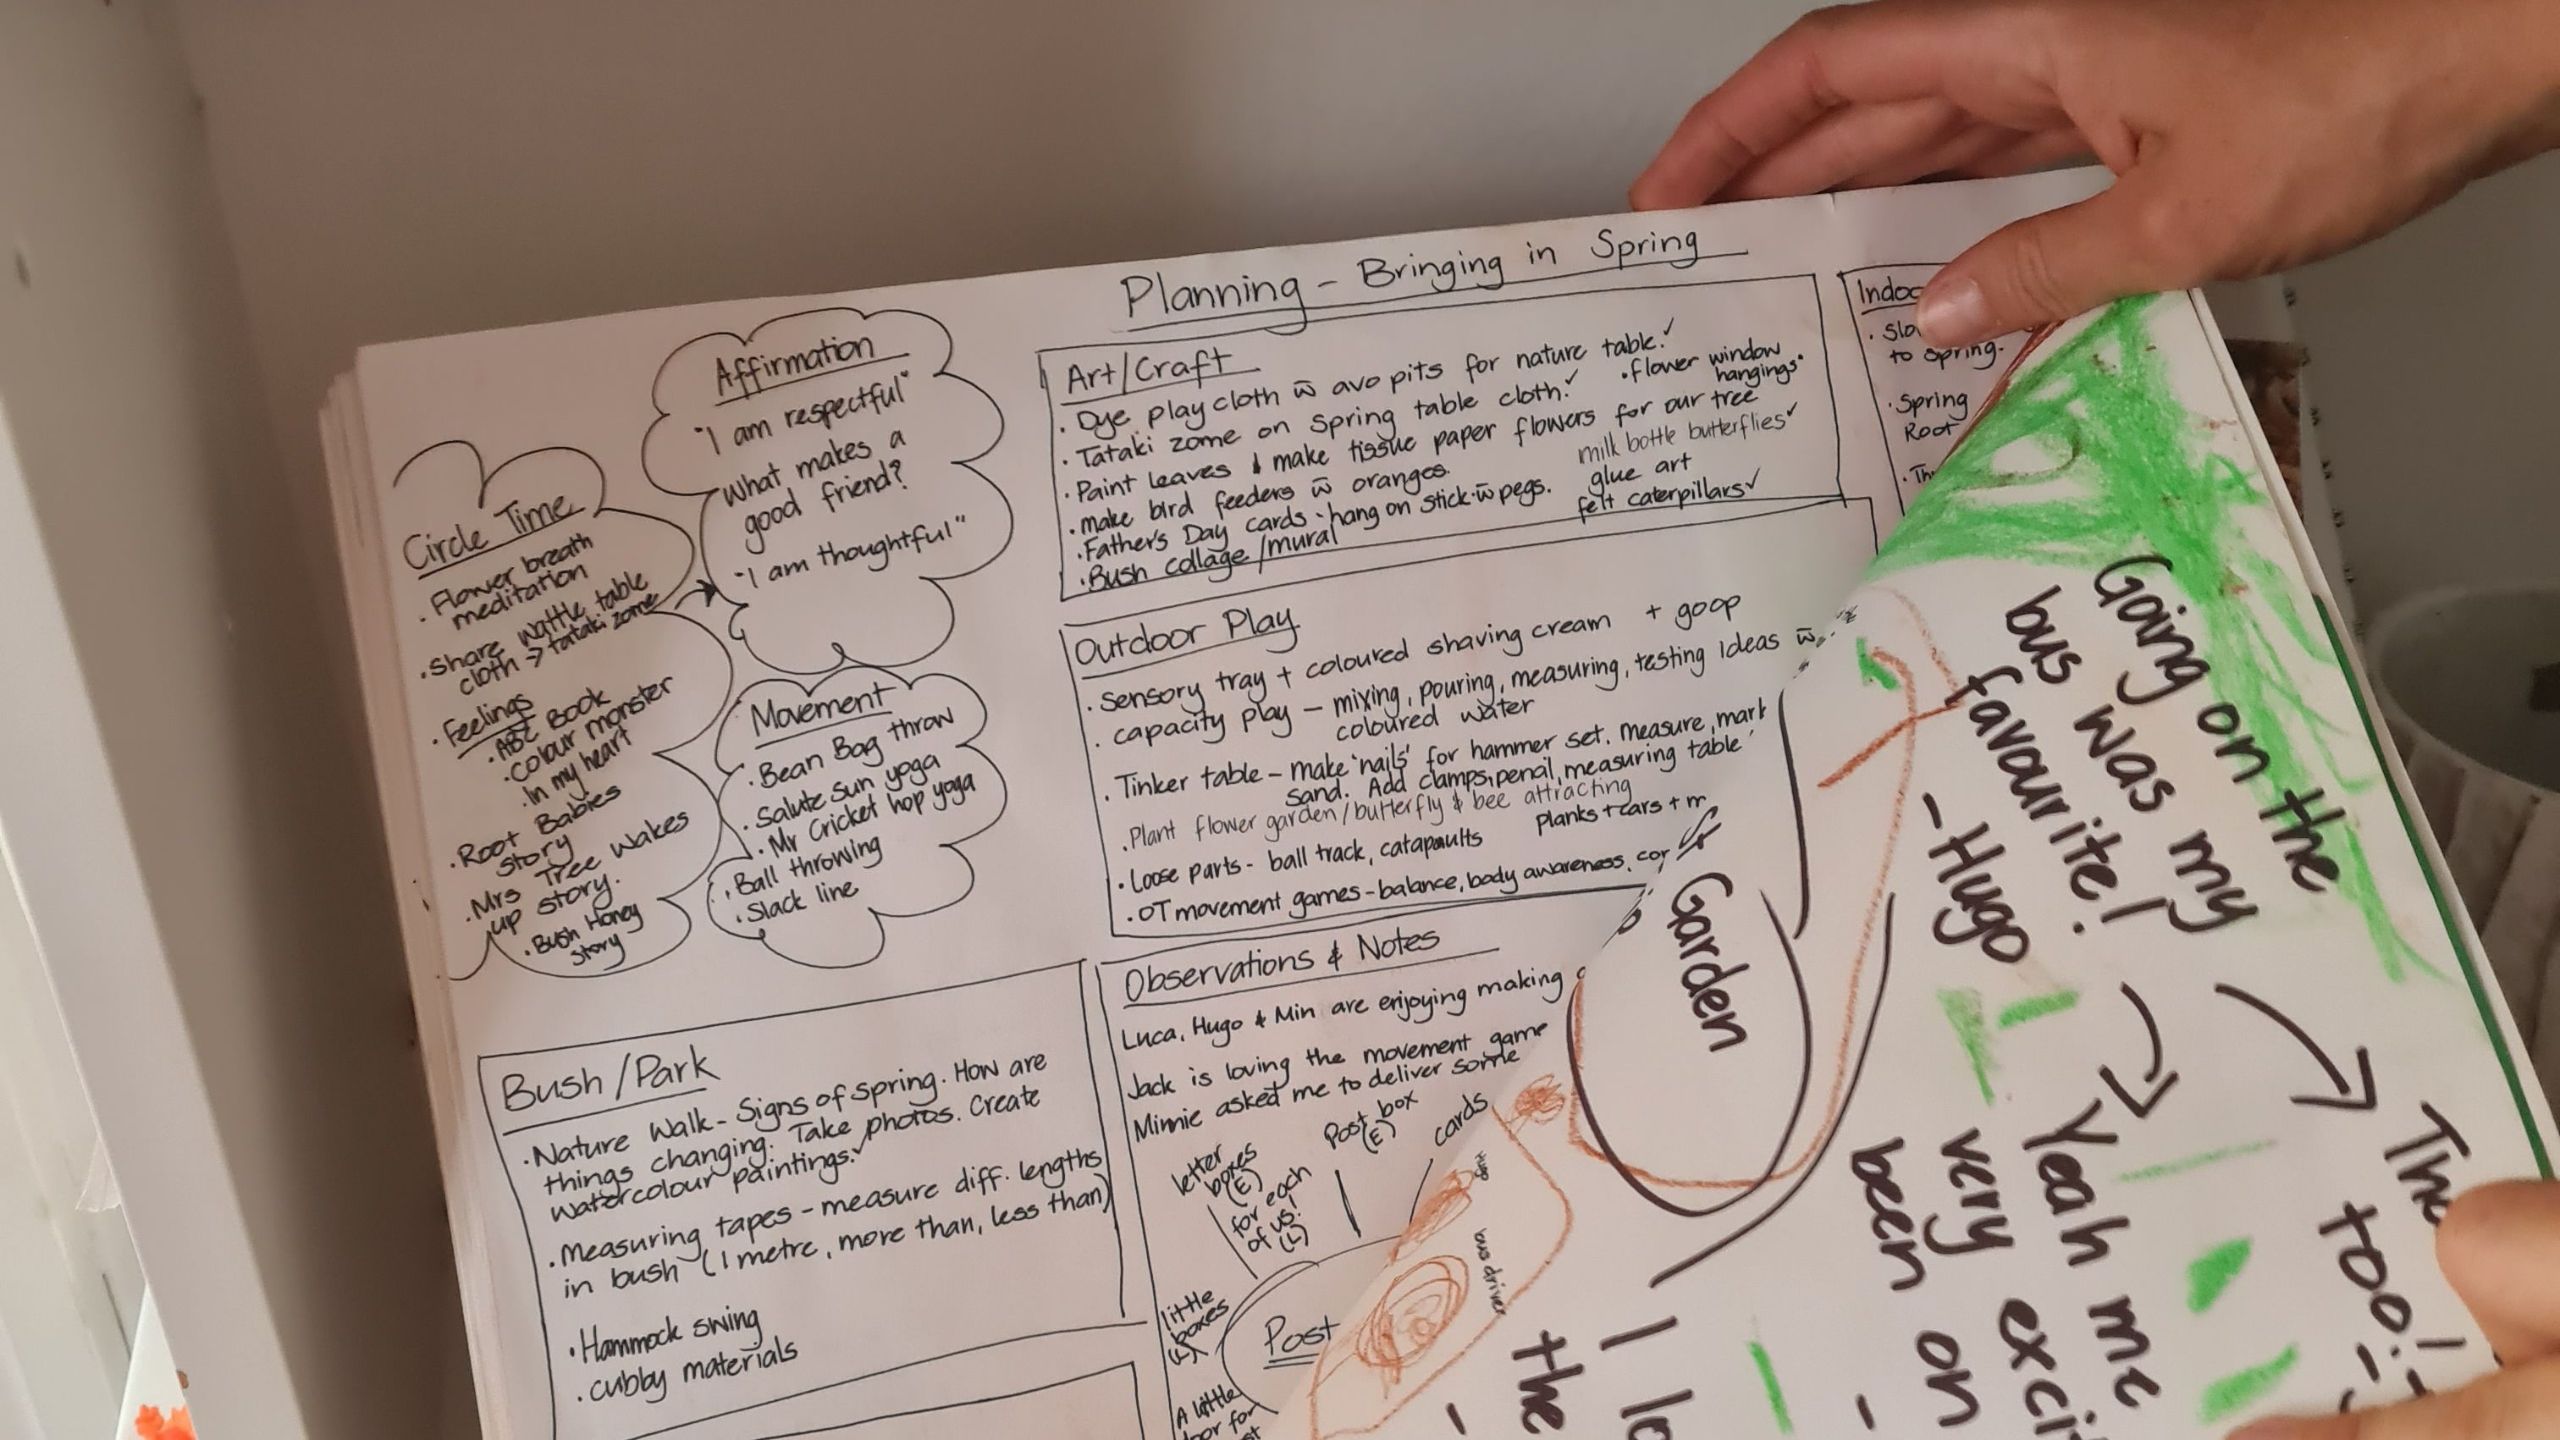 Planning - Bringing in Spring
Circle Time
· Flower breath
meditation
· Share wattle table
cloth → tataki zome
· Feelings
· ABC Book
· Colour monster
· In my heart
· Root Babies
story
· Mrs Tree Wakes
up story.
· Bush Honey
story
Affirmation
"I am respectful"
What makes a
good friend?
"I am thoughtful"
Movement
· Bean Bag throw
· Salute sun yoga
· Mr Cricket hop yoga
· Ball throwing
· Slack line
Art/Craft
· Dye play cloth w̄ avo pits for nature table. ✓
· Tataki zome on Spring table cloth. ✓
· flower window
hangings
· Paint leaves & make tissue paper flowers for our tree
· make bird feeders w̄ oranges.
· Father's Day cards - hang on stick w̄ pegs.
· Bush collage/mural
milk bottle butterflies ✓
glue art
felt caterpillars ✓
to Spring.
· Spring
Root
Outdoor Play
· Sensory tray + coloured shaving cream + goop
· capacity play – mixing, pouring, measuring, testing ideas w̄
coloured water
· Tinker table – make 'nails' for hammer set. measure, mark
sand. Add clamps, pencil, measuring table
· Plant flower garden/butterfly & bee attracting
· Loose parts - ball track, catapaults
planks + cars +
· OT movement games - balance, body awareness,
Bush/Park
· Nature Walk - Signs of spring. How are
things changing. Take photos. Create
watercolour paintings. ✓
· Measuring tapes - measure diff. lengths
in bush (1 metre, more than, less than)
· Hammock swing
· cubby materials
Observations & Notes
Luca, Hugo & Min are enjoying making
Jack is loving the movement game
Minnie asked me to deliver some
letter
boxes
(E)
for each
of us!
(L)
Post box
(E)
cards
little
boxes
(L)
Post
A little
door for
Going on the
bus was my
favourite!
- Hugo
Garden
bus driver
Yeah me
very
been on
too!
I
the